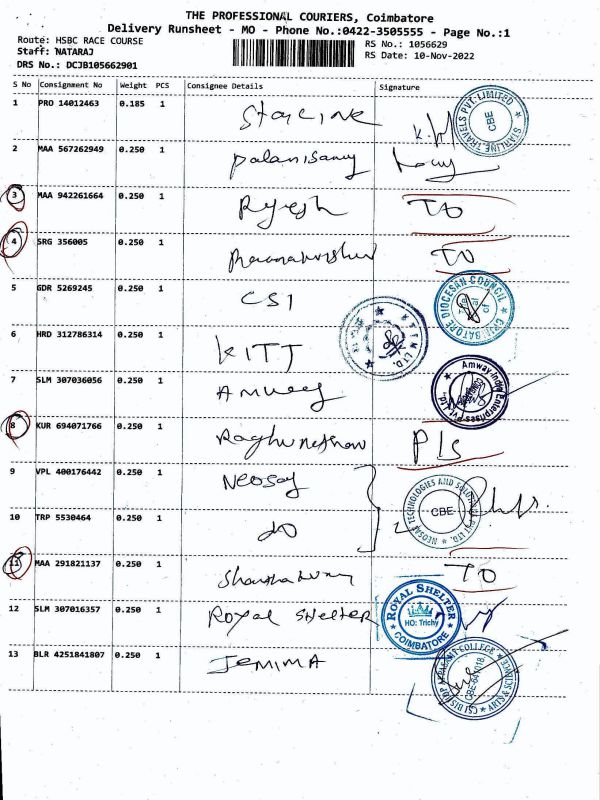 THE PROFESSIONAL COURIERS, Coimbatore
Delivery Runsheet - MO - Phone No.:0422-3505555 - Page No.:1
Route: HSBC RACE COURSE
Staff: NATARAJ
DRS No.: DCJB105662901
RS No.: 1056629
RS Date: 10-Nov-2022
S No Consignment No Weight PCS Consignee Details Signature
1 PRO 14012463 0.185 1 Starline
STARLINE TRAVELS PVT. LIMITED CBE
2 MAA 567262949 0.250 1 palanisamy
3 MAA 942261664 0.250 1 Rajesh TO
4 SRG 356005 0.250 1 TO
5 GDR 5269245 0.250 1 CSI
COIMBATORE DIOCESAN COUNCIL
6 HRD 312786314 0.250 1 KITT
7 SLM 307036056 0.250 1 Amway
Amway India Enterprises Pvt. Ltd.
8 KUR 694071766 0.250 1 PIS
9 VPL 400176442 0.250 1 Neosay
NEOSAY TECHNOLOGIES AND SOLUTIONS PVT LTD. CBE
10 TRP 5530464 0.250 1 do
11 MAA 291821137 0.250 1 TO
12 SLM 307016357 0.250 1 Royal Shelter
ROYAL SHELTER HO: Trichy COIMBATORE
13 BLR 4251841807 0.250 1 JEMIMA